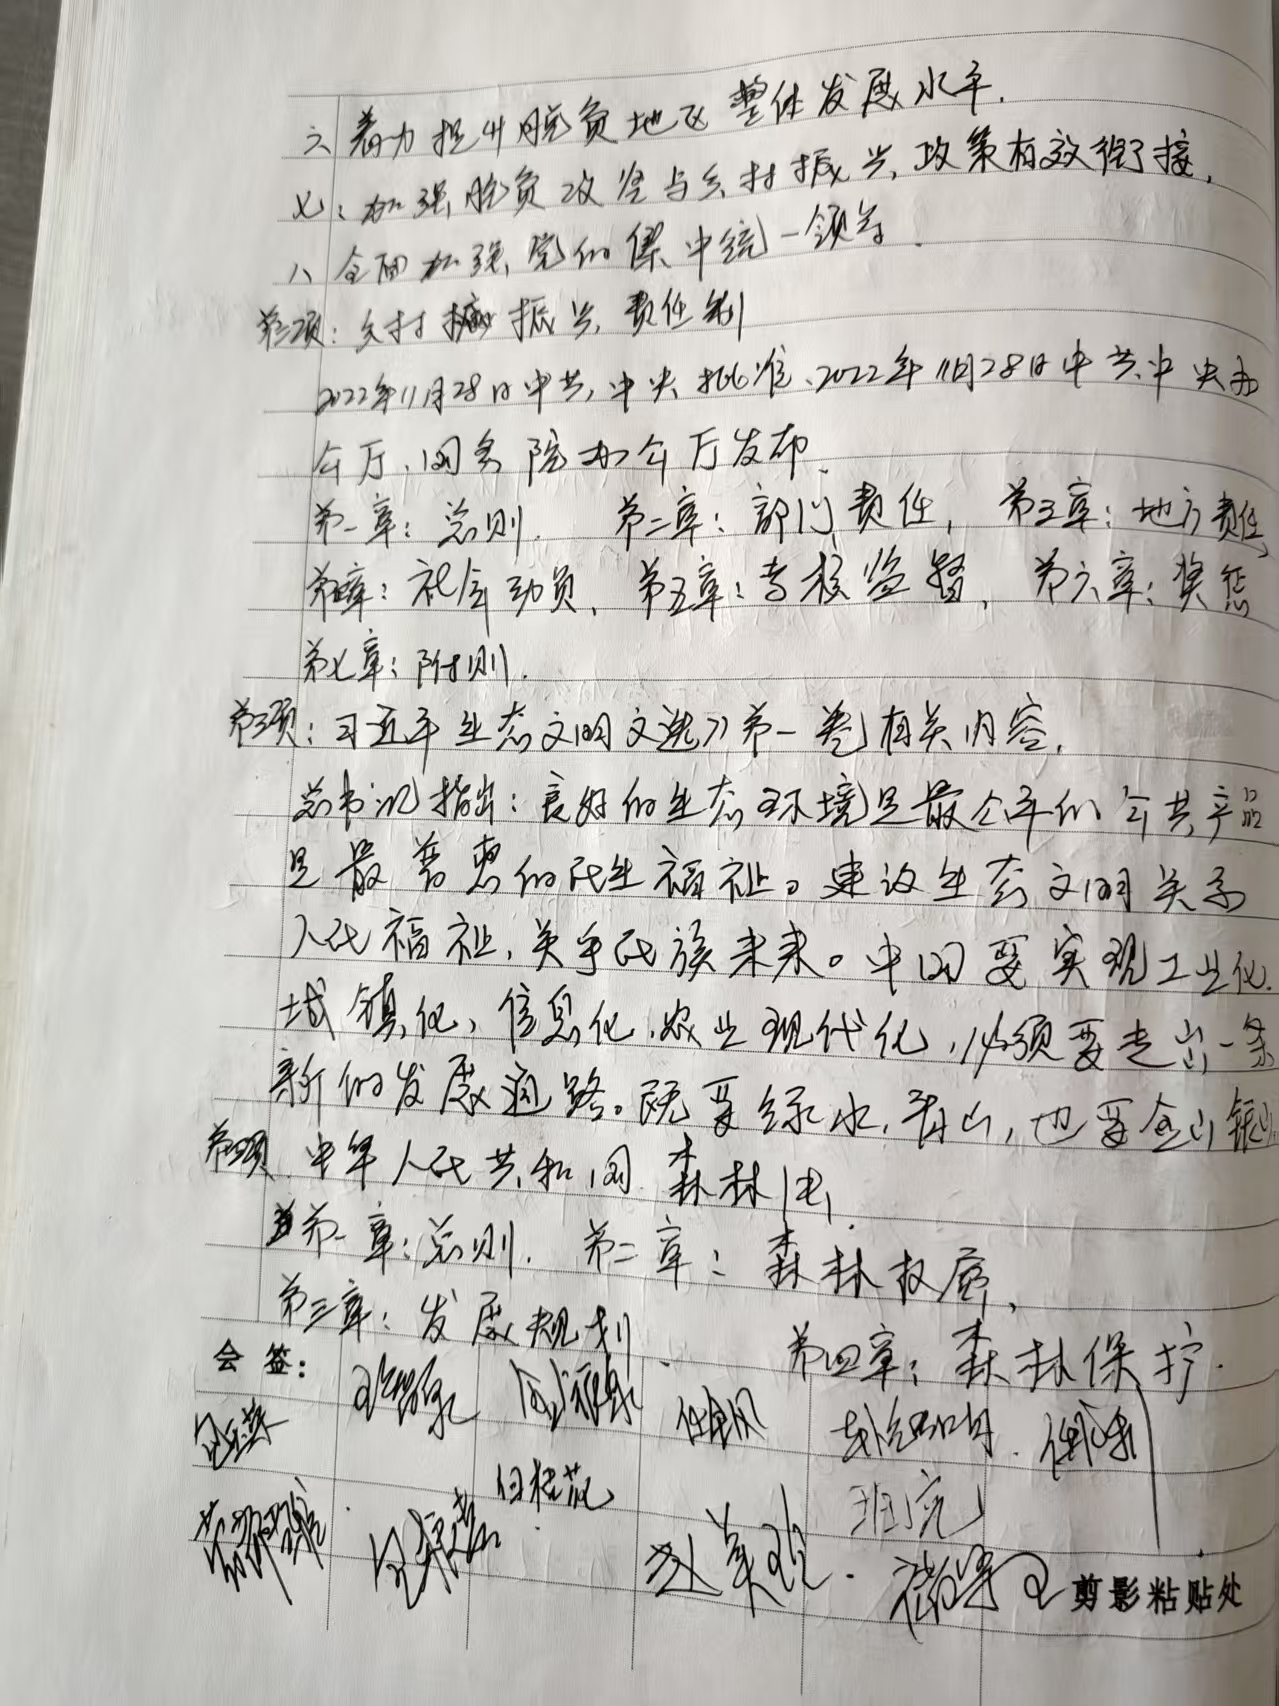 六、着力提升脱贫地区整体发展水平.
七、加强脱贫攻坚与乡村振兴,政策有效衔接,
八、全面加强党的集中统一领导.
第二项:乡村振兴责任制
2022年11月28日中共中央批准、2022年11月28日中共中央办
公厅、国务院办公厅发布.
第一章:总则. 第二章:部门责任, 第三章:地方责任,
第四章:社会动员、第五章:考核监督, 第六章:奖惩
第七章:附则.
第三项:习近平生态文明文选》第一卷有关内容,
总书记指出:良好的生态环境是最公平的公共产品
是最普惠的民生福祉。建设生态文明关系
人民福祉,关乎民族未来。中国要实现工业化.
城镇化、信息化、农业现代化,必须要走出一条
新的发展道路。既要绿水,青山,也要金山银山.
第四项 中华人民共和国森林法.
第一章:总则. 第二章:森林权属,
第三章:发展规划. 第四章:森林保护.
会 签:
任金凤
白桂花
剪影粘贴处